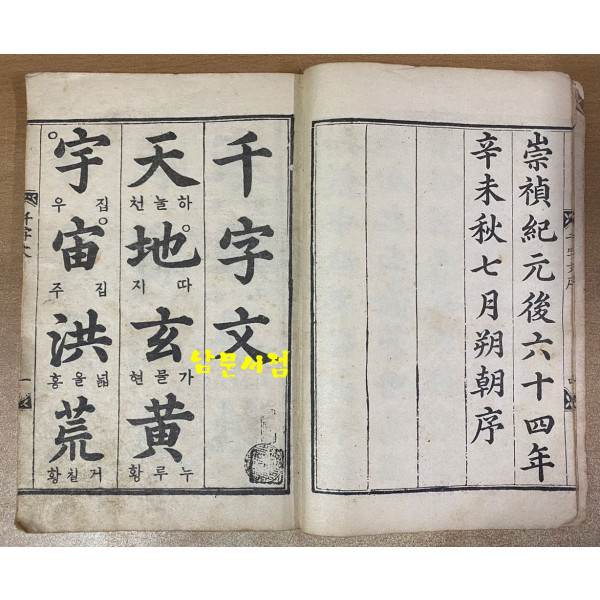 崇禎紀元後六十四年
辛未秋七月朔朝序
千字文
天 하늘천
地 따지
玄 가물현
黃 누루황
宇 집우
宙 집주
洪 넓을홍
荒 거칠황
千字文 一
남문서점